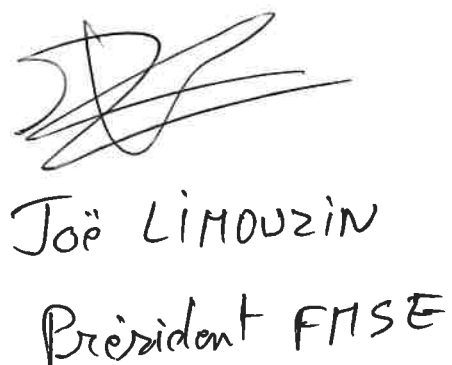 Joë LIMOUZIN
Président FMSE